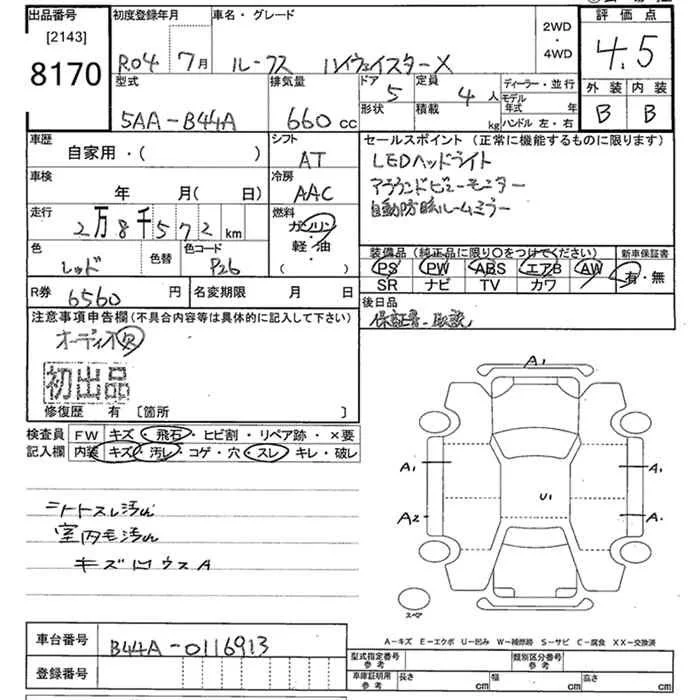 出品番号
[2143]
8170
初度登録年月
R04 7月
車名・グレード
ルークス ハイウェイスターX
2WD
・
4WD
評価点
4.5
外装 内装
B B
型式
5AA-B44A
排気量
660cc
ドア
5
形状
定員
4人
積載
kg
ディーラー・並行
モデル年式 年
ハンドル 左・右
車歴
自家用・( )
シフト
AT
車検
年 月( 日)
冷房
AAC
走行
2万8千572km
燃料
ガソリン
軽・油
( ・ )
色
レッド
色替
色コード
P26
R券
6560円
名変期限 月 日
セールスポイント(正常に機能するものに限ります)
LEDヘッドライト
アラウンドビューモニター
自動防眩ルームミラー
装備品(純正品に限り○をつけてください)
PS PW ABS エアB AW
SR ナビ TV カワ
新車保証書
有・無
後日品
保証書、取説、
注意事項申告欄(不具合内容等は具体的に記入して下さい)
オーディオ欠
初出品
修復歴 有 [箇所 ]
検査員記入欄
FW キズ・飛石・ヒビ割・リペア跡・×要
内装 キズ・汚レ・コゲ・穴・スレ・キレ・破レ
シートスレ汚れ
室内毛汚れ
キズ凹ウスA
A1
A1
A2
U1
A1
A1
スペア
A-キズ E-エクボ U-凹み W-補修跡 S-サビ C-腐食 XX-交換済
車台番号
B44A-0116913
登録番号
型式指定番号
参考
類別区分番号
参考
車庫証明用
参考
長さ cm
幅 cm
高さ cm